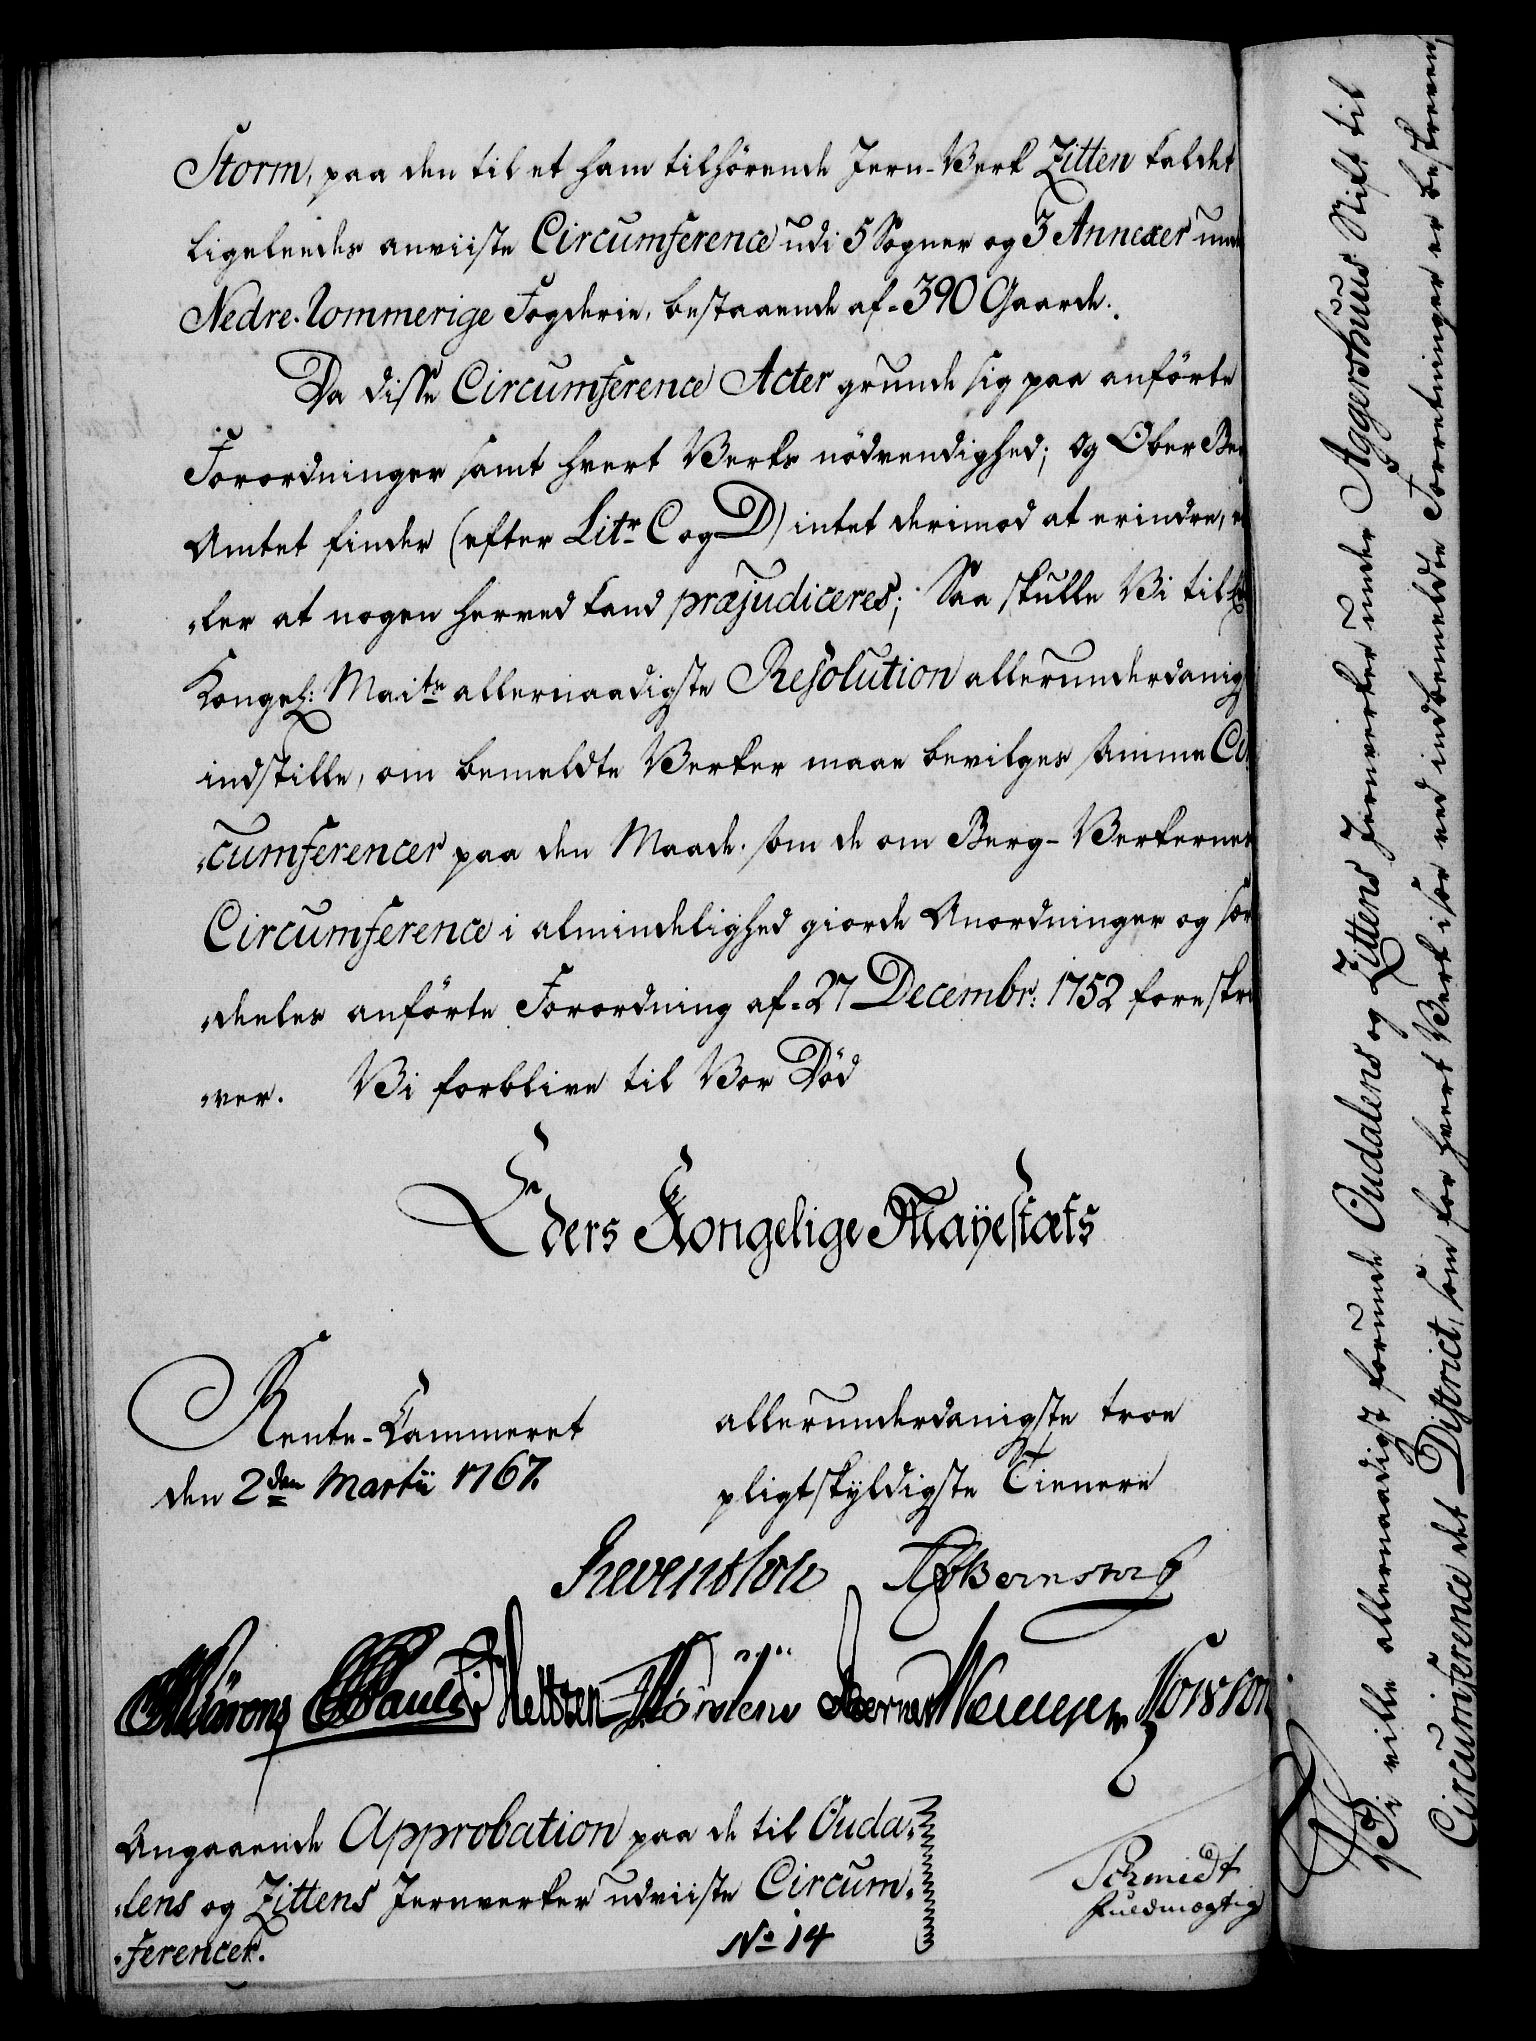 Storm, paa den til et ham tilhörende Jern-Verk Zitten kaldet
ligeleedes anviiste Circumference udi 5 Sogner og 3 Annexer
Nedre-Rommerige Fogderie, bestaaende af 390 Gaarde.
Da disse Circumference Acter grunde sig paa anförte
Forordninger samt hvert Verks nödvendighed; og Ober
Amtet finder (efter Litr. C og D) intet derimod at erindre,
ker at nogen herved kand præjudiceres; Saa skulle Vi til
Kongel: Maits allernaadigste Resolution allerunderdanigst
indstille, om bemeldte Verker maae bevilges samme Cir
cumferencer paa den Maade, som de om Berg-Verkernes
Circumference i almindelighed giorde Anordninger og sær
deeles anförte Forordning af 27 Decembr: 1752 foreskri
ver. Vi forblive til Vor Död
Eders Kongelige Mayestæts
Rente-Cammeret
den 2den Martii 1767.
allerunderdanigste troe
pligtskyldigste Tienere
Reventlow Bernstorff
Angaaende Approbation paa de til Ouda
lens og Zittens Jernverker udviiste Circum
ferencer.
No 14
Schmidt
fuldmægtig
Vi ville allernaadigst forunde Oudalens og Zittens Jernverker under Aggershuus Stift til
Circumference det District, som for hvert Verk især ved indbemeldte Forretninger er beskreven,